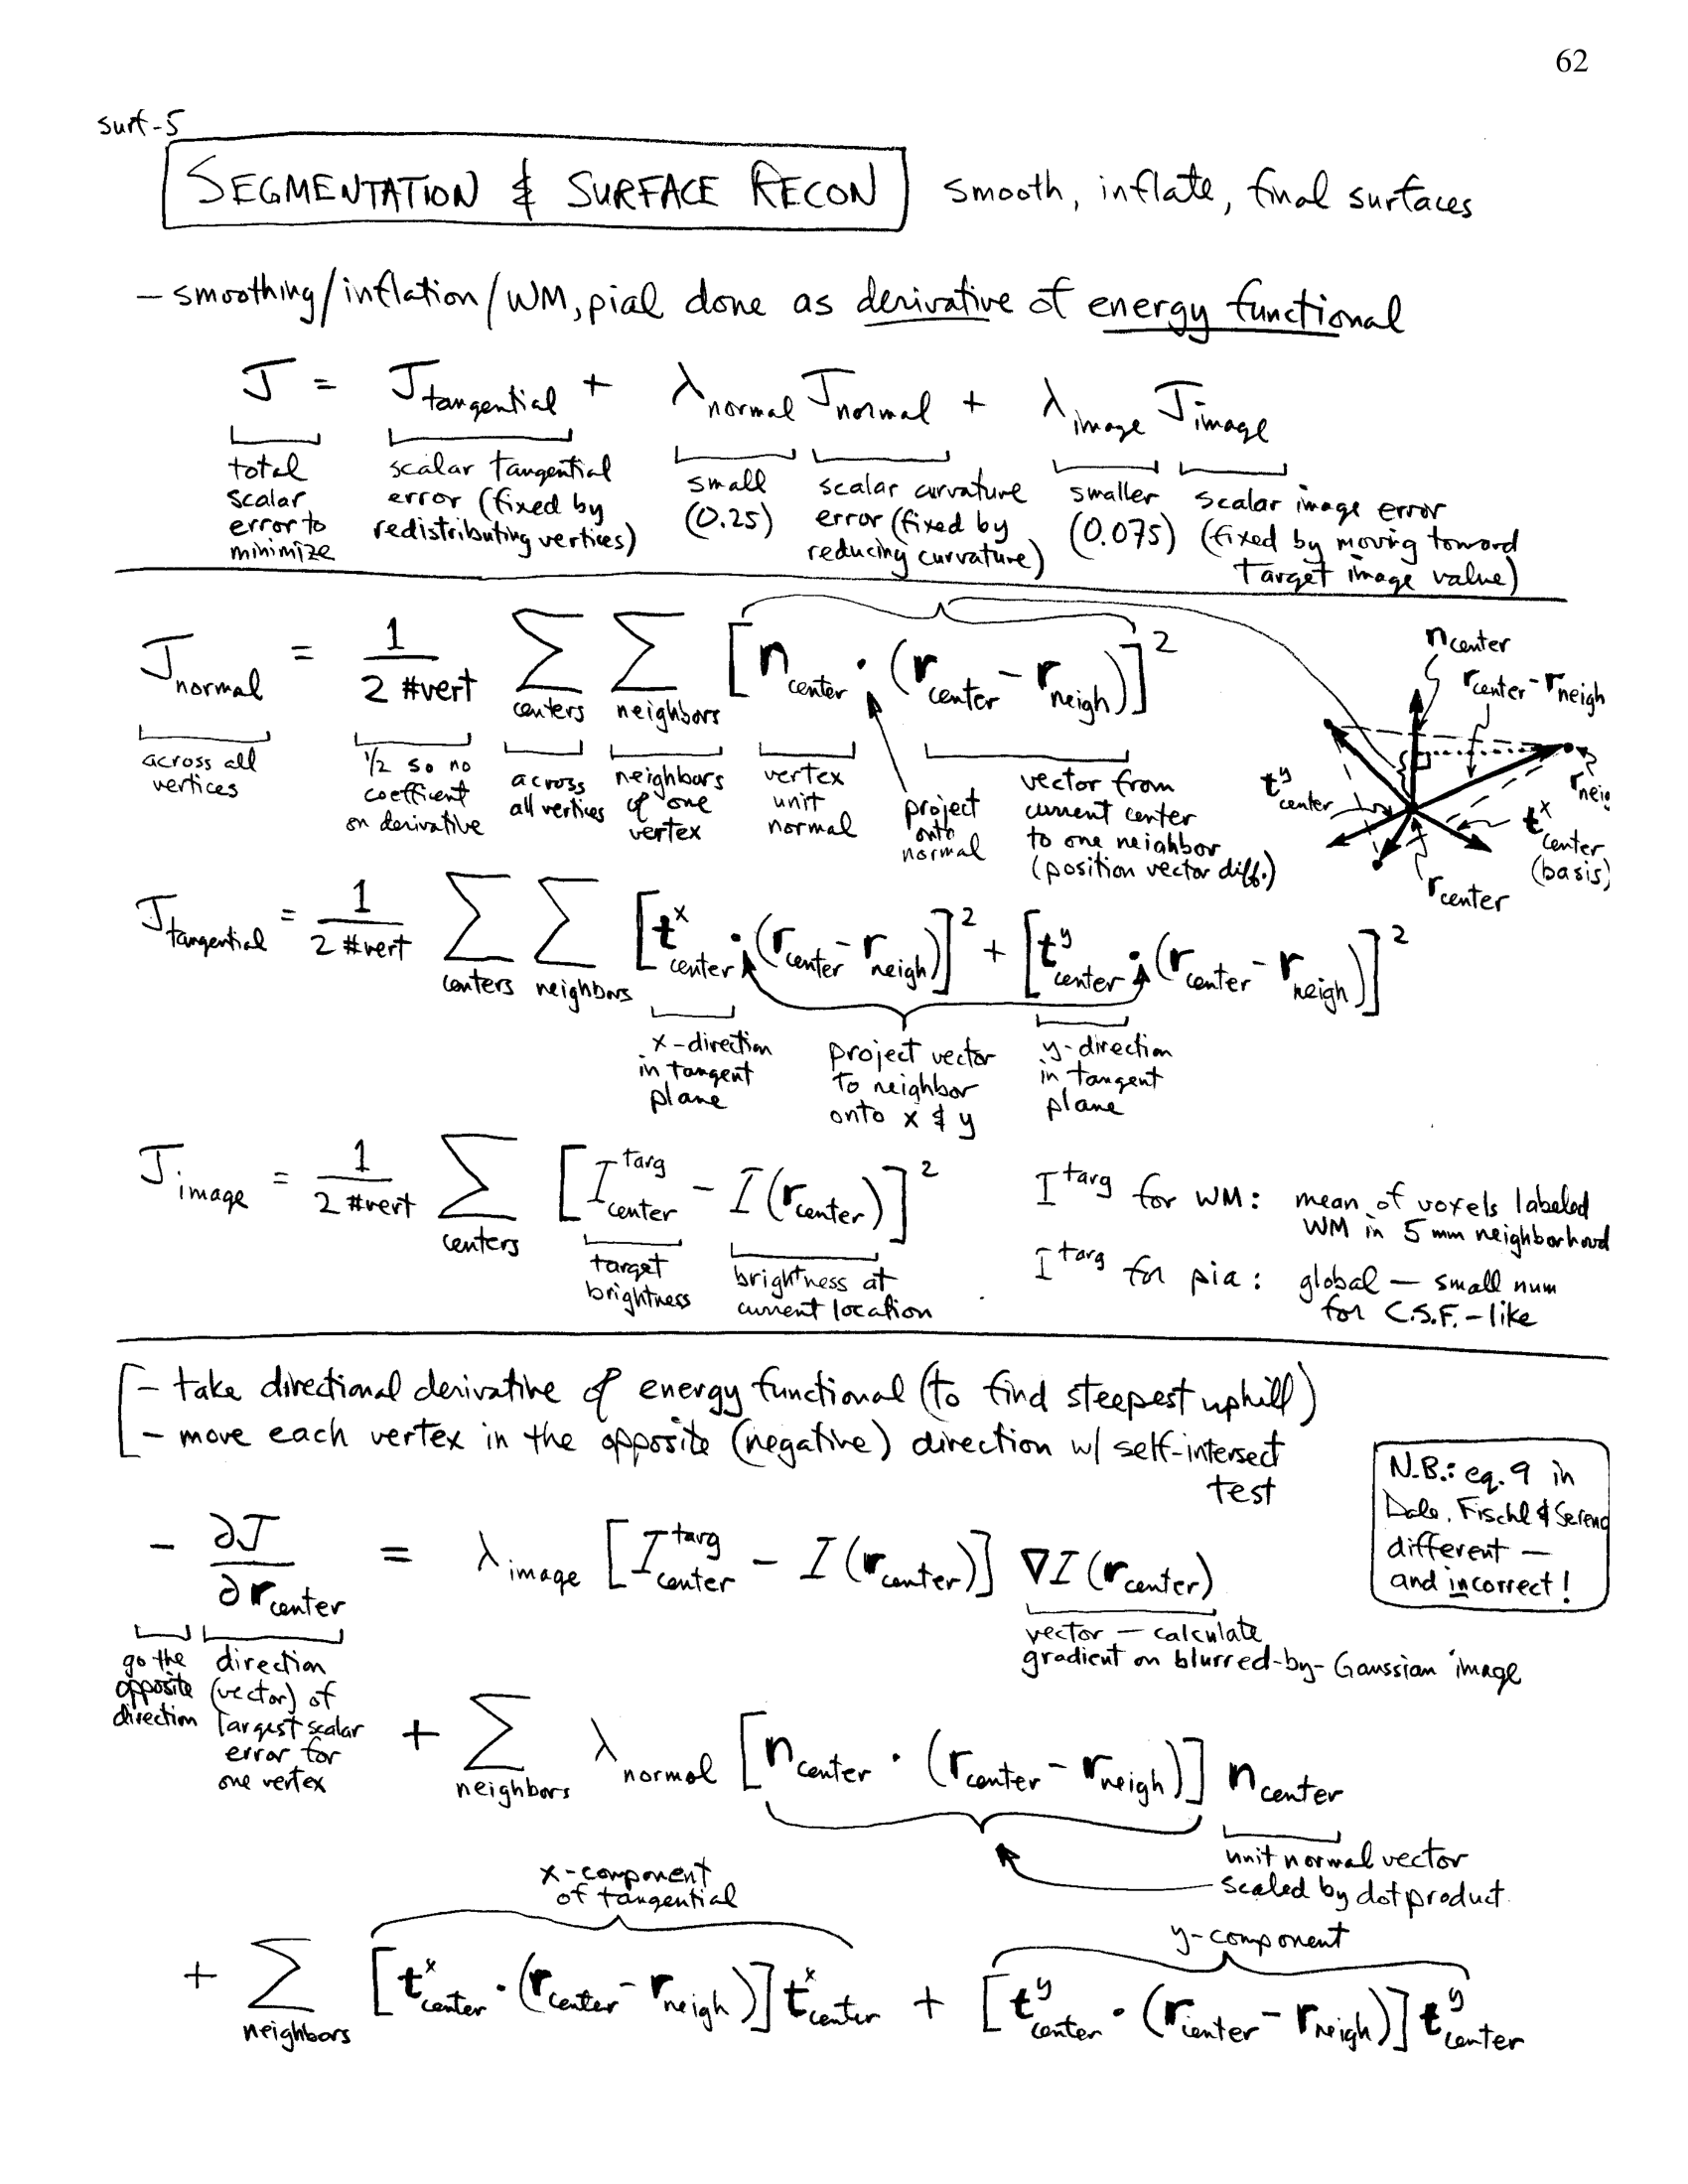 62
surf-5
SEGMENTATION & SURFACE RECON smooth, inflate, final surfaces
– smoothing/inflation/WM, pial done as derivative of energy functional
J = J tangential + λ normal J normal + λ image J image
total scalar error to minimize
scalar tangential error (fixed by redistributing vertices)
small (0.25)
scalar curvature error (fixed by reducing curvature)
smaller (0.075)
scalar image error (fixed by moving toward target image value)
J normal = 1 / 2 #vert Σ centers Σ neighbors [n center · (r center – r neigh)]²
across all vertices
1/2 so no coefficent on derivative
across all vertices
neighbors of one vertex
vertex unit normal
project onto normal
vector from current center to one neighbor (position vector diff.)
n center
r center – r neigh
t^y center
r neig
t^x center (basis)
r center
J tangential = 1 / 2 #vert Σ centers Σ neighbors [t^x center · (r center – r neigh)]² + [t^y center · (r center – r neigh)]²
x-direction in tangent plane
project vector to neighbor onto x & y
y-direction in tangent plane
J image = 1 / 2 #vert Σ centers [I^targ center – I(r center)]²
target brightness
brightness at current location
I^targ for WM: mean of voxels labeled WM in 5 mm neighborhood
I^targ for pia: global – small num for C.S.F.-like
– take directional derivative of energy functional (to find steepest uphill)
– move each vertex in the opposite (negative) direction w/ self-intersect test
N.B.: eq. 9 in
Dale, Fischl & Sereno
different –
and incorrect!
– ∂J / ∂r center = λ image [I^targ center – I(r center)] ∇I(r center)
go the opposite direction
direction (vector) of largest scalar error for one vertex
vector – calculate gradient on blurred-by-Gaussian image
+ Σ neighbors λ normal [n center · (r center – r neigh)] n center
unit normal vector scaled by dot product
x-component of tangential
y-component
+ Σ neighbors [t^x center · (r center – r neigh)] t^x center + [t^y center · (r center – r neigh)] t^y center